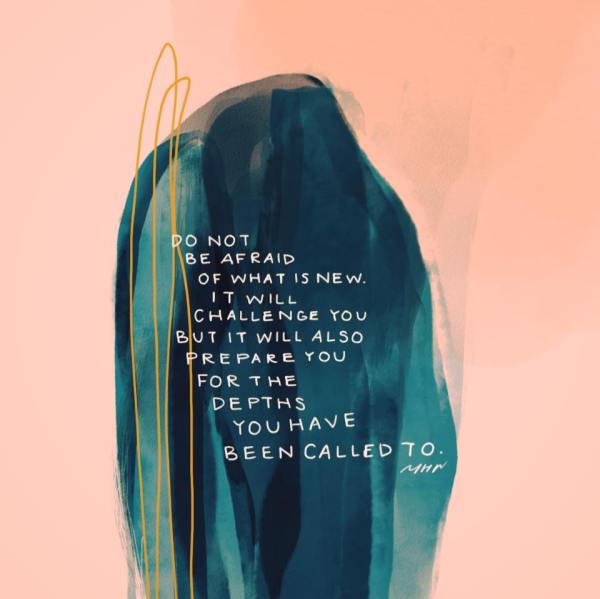 DO NOT
BE AFRAID
OF WHAT IS NEW.
IT WILL
CHALLENGE YOU
BUT IT WILL ALSO
PREPARE YOU
FOR THE
DEPTHS
YOU HAVE
BEEN CALLED TO.
MHN